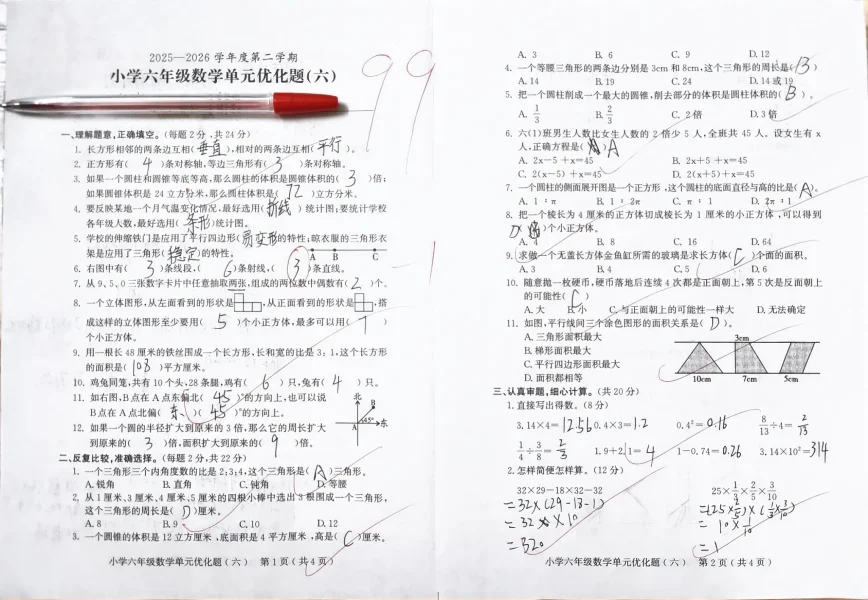 2025—2026 学年度第二学期
小学六年级数学单元优化题(六)
99
一、理解题意,正确填空。(每题 2 分,共 24 分)
1. 长方形相邻的两条边互相(垂直),相对的两条边互相(平行)。
2. 正方形有( 4 )条对称轴,等边三角形有( 3 )条对称轴。
3. 如果一个圆柱和圆锥等底等高,那么圆柱的体积是圆锥体积的( 3 )倍;
如果圆锥体积是 24 立方分米,那么圆柱体积是( 72 )立方分米。
4. 要反映某地一个月气温变化情况,最好选用(折线)统计图;要统计学校
各年级人数,最好选用(条形)统计图。
5. 学校的伸缩铁门是应用了平行四边形(易变形)的特性;晾衣服的三角形衣
架是应用了三角形(稳定)的特性。
6. 右图中有( 3 )条线段,( 6 )条射线,( 3 )条直线。
A B C
-1
7. 从 9、5、0 三张数字卡片中任意抽取两张,组成的两位数中偶数有( 2 )个。
8. 一个立体图形,从左面看到的形状是,从正面看到的形状是,搭
成这样的立体图形至少要用( 5 )个小正方体,最多可以用( 7 )
个小正方体。
9. 用一根长 48 厘米的铁丝围成一个长方形,长和宽的比是 3:1,这个长方形
的面积是(108)平方厘米。
10. 鸡兔同笼,共有 10 个头,28 条腿,鸡有( 6 )只,兔有( 4 )只。
11. 如右图,B点在 A点东偏北( 45 )°的方向上,也可以说
B点在 A点北偏(东)( 45 )°的方向上。
北
B
45°
A
东
12. 如果一个圆的半径扩大到原来的 3 倍,那么它的周长扩大
到原来的( 3 )倍,面积扩大到原来的( 9 )倍。
二、反复比较,准确选择。(每题 2 分,共 22 分)
1. 一个三角形三个内角度数的比是 2:3:4,这个三角形是( A )三角形。
A. 锐角 B. 直角 C. 钝角 D. 等腰
2. 从 1厘米、3厘米、4厘米、5厘米的四根小棒中选出 3根围成一个三角形,
这个三角形的周长是( D )厘米。
A. 8 B. 9 C. 10 D. 12
3. 一个圆锥的体积是 12 立方厘米,底面积是 4 平方厘米,高是( C )厘米。
小学六年级数学单元优化题(六) 第 1 页(共 4 页)
A. 3 B. 6 C. 9 D. 12
4. 一个等腰三角形的两条边分别是 3cm 和 8cm,这个三角形的周长是( B )
A. 14 B. 19 C. 24 D. 14 或 19
5. 把一个圆柱削成一个最大的圆锥,削去部分的体积是圆柱体积的( B )。
A. 1/3 B. 2/3 C. 2 倍 D. 3 倍
6. 六(1)班男生人数比女生人数的 2 倍少 5 人,全班共 45 人。设女生有 x
人,正确方程是( A )
A. 2x-5+x=45 B. 2x+5+x=45
C. 2(x-5)+x=45 D. 2(x+5)+x=45
7. 一个圆柱的侧面展开图是一个正方形,这个圆柱的底面直径与高的比是( A )。
A. 1:π B. 1:2π C. π:1 D. 2π:1
8. 把一个棱长为 4 厘米的正方体切成棱长为 1 厘米的小正方体,可以得到
( D )个小正方体。
A. 4 B. 8 C. 16 D. 64
9. 求做一个无盖长方体金鱼缸所需的玻璃是求长方体( C )个面的面积。
A. 3 B. 4 C. 5 D. 6
10. 随意抛一枚硬币,硬币落地后连续 4 次都是正面朝上,第 5 次是反面朝上
的可能性( C )
A. 大 B. 小 C. 与正面朝上的可能性一样大 D. 无法确定
11. 如图,平行线间三个涂色图形的面积关系是( D )。
A. 三角形面积最大
B. 梯形面积最大
C. 平行四边形面积最大
D. 面积都相等
3cm
10cm 7cm 5cm
三、认真审题,细心计算。(共 20 分)
1. 直接写出得数。(8 分)
3.14×4= 12.56 0.4×3= 1.2 0.4²= 0.16 8/13÷4= 2/13
1/4÷3/8= 2/3 1.9+2.1= 4 1-0.74= 0.26 3.14×10²= 314
2. 怎样简便怎样算。(12 分)
32×29-18×32-32 25×1/3×2/5×3/10
=32×(29-18-1) =(25×2/5)×(1/3×3/10)
=32×10 =10×1/10
=320 =1
小学六年级数学单元优化题(六) 第 2 页(共 4 页)